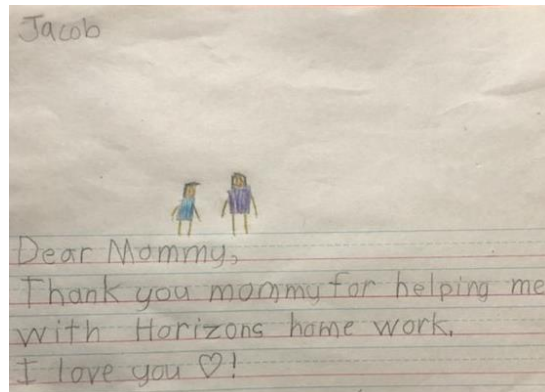 Jacob
Dear Mommy,
Thank you mommy for helping me
with Horizons home work.
I love you ♡!